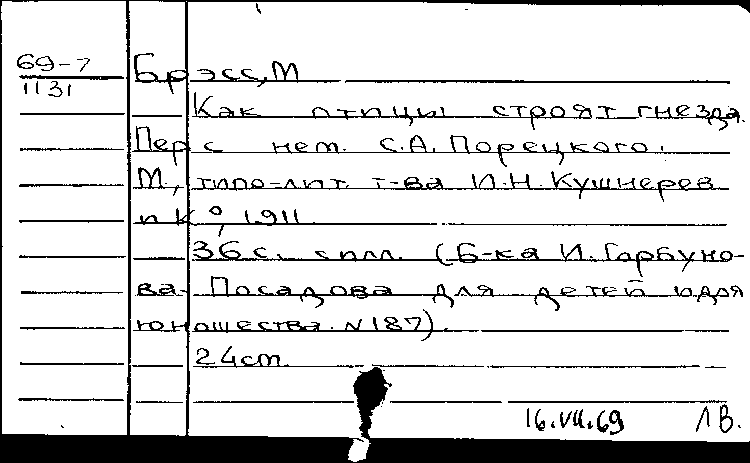 69-7
1131
Брэсс, М
Как птицы строят гнезда.
Пер с нем. С.А. Порецкого.
М., типо-лит. т-ва И.Н. Кушнерев
и К°, 1911.
36 с. с илл. (Б-ка И. Горбуно-
ва-Посадова для детей и для
юношества. N 187).
24 cm.
16.VII.69 ЛВ.